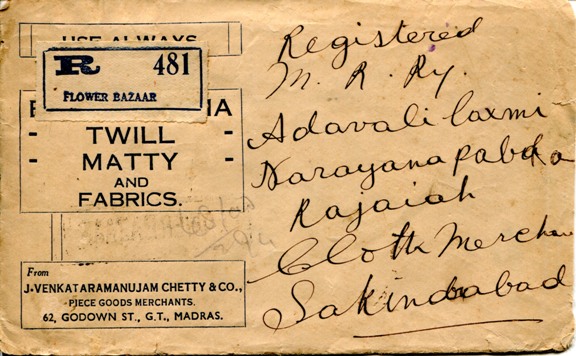 USE ALWAYS
R 481
FLOWER BAZAAR
TWILL
MATTY
AND
FABRICS.
From
J. VENKATARAMANUJAM CHETTY & CO.,
PIECE GOODS MERCHANTS.
62, GODOWN ST., G.T., MADRAS.
Registered
M. R. Ry.
Adavali laxmi
Narayana pabda
Rajaiah
Cloth Merchan
Sakindrabad